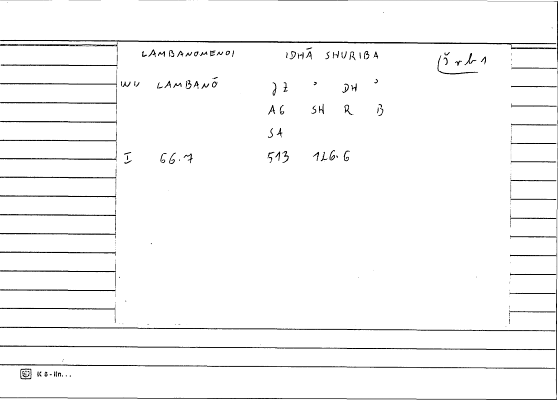 LAMBANOMENOI IDHĀ SHURIBA šrb1
WV LAMBANŌ ZZ ʾ DH ʾ
AG SH R B
SA
I 66.7 513 126.6